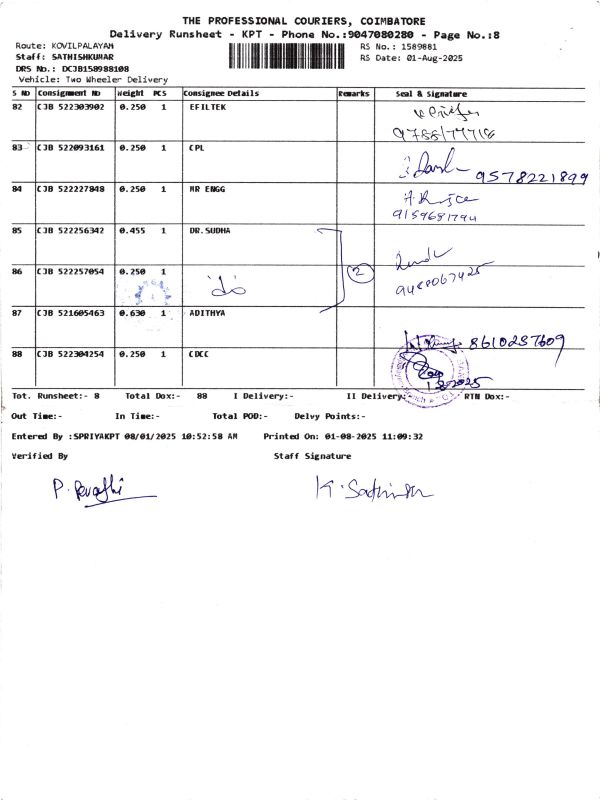 THE PROFESSIONAL COURIERS, COIMBATORE
Delivery Runsheet - KPT - Phone No.:9047080280 - Page No.:8
Route: KOVILPALAYAM RS No.: 1589881
Staff: SATHISHKUMAR RS Date: 01-Aug-2025
DRS No.: DCJB158988108
Vehicle: Two Wheeler Delivery
S No Consignment No Weight PCS Consignee Details Remarks Seal & Signature
82 CJB 522303902 0.250 1 EFILTEK
83 CJB 522093161 0.250 1 CPL
9578221899
84 CJB 522227848 0.250 1 MR ENGG
85 CJB 522256342 0.455 1 DR.SUDHA
86 CJB 522257054 0.250 1 do 2
87 CJB 521605463 0.630 1 ADITHYA
8610237609
88 CJB 522304254 0.250 1 CDCC
Tot. Runsheet:- 8 Total Dox:- 88 I Delivery:- II Delivery:- RTN Dox:-
Out Time:- In Time:- Total POD:- Delvy Points:-
Entered By :SPRIYAKPT 08/01/2025 10:52:58 AM Printed On: 01-08-2025 11:09:32
Verified By Staff Signature
P. Revathi K. Sathish